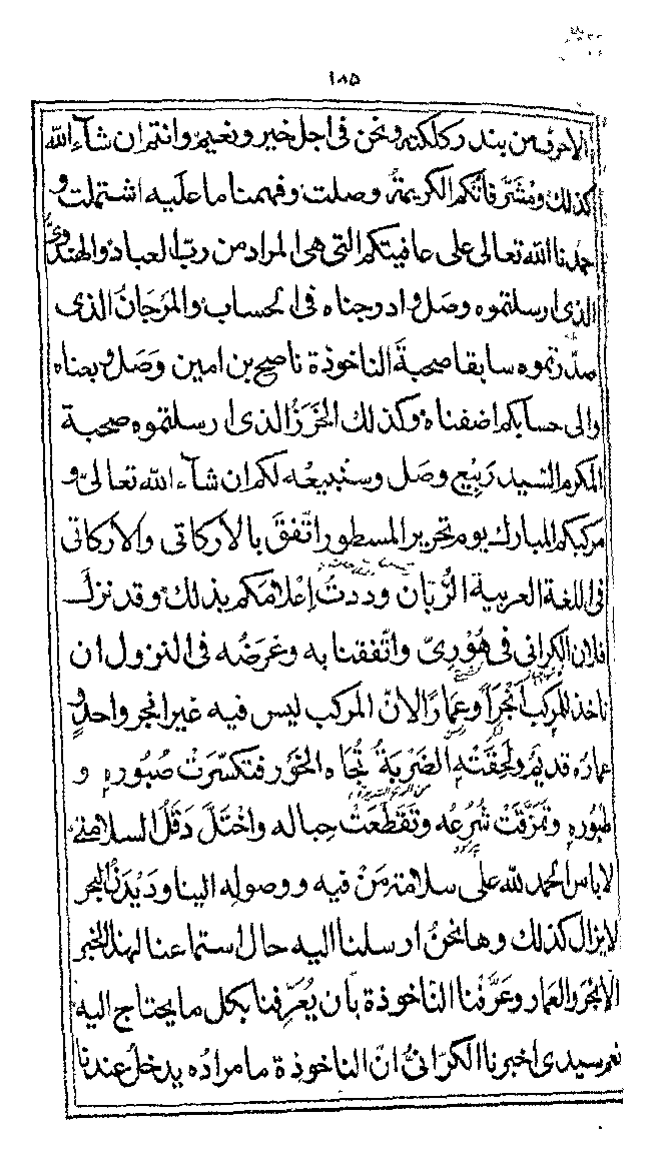 ١٨٥
الاحرف من بندر كلكته ونحن فى اجل خير ونعيم وانتم ان شآء الله
كذلك ومُشَرَّفاتُكم الكريمةُ وصلت وفهمنا ما علَيه اشتملت و
حمدنا الله تعالى على عافيتكم التى هى المراد من ربّ العباد والهندوىّ
الذى ارسلتموه وصَل وادرجناه فى الحساب والمَرجَانُ الذى
صدّرتموه سابقا صحبةَ الناخوذة ناصح بن امين وَصَل وبعناه
والى حسابكم اضفناه وكذلك الخَرَزُ الذى ارسلتموه صحبة
المكرم السّيد رَبيع وصَل وسنبيعُه لكم ان شآء الله تعالىٰ و
مركبكم المبارك يوم تحرير المسطور اتّفقَ بالاركاتى والاركاتى
فى اللغة العربية الرُّبّان وددتُ إعْلامَكم بذلك وقد نزلَ
فلان الكرانى فى هُوْرِىّ واتّفقنا به وغرَضُه فى النزول ان
ناخذ للمركب أَنْجَرًا وعَمَارًا لانّ المركب ليس فيه غير انجر واحد و
عمارُه قديمٌ ولَحِقَتْهِ الضَربَةُ تُجاه الخَوَر فتكسّرَتْ صُبُوره و
طبُوره وتمَزّقَتْ شُرُعُه وتَقَطّعَتْ حباله واخْتَلَّ دَقَلُ السلامتى
لا باس الحمد لله على سلامة مَنْ فيه ووصولِه الينا ودَيْدَنُ البحر
لا يزال كذلك وها نحنُ ارسلنا اليه حال استماعنا لهذا الخبر
الانجَر والعمار وعَرَّفْنا النّاخوذة بان يُعَرِّفنا بكل ما يحتاج اليه
نعم سيدى اخبرنا الكَرّانىُّ انّ الناخوذة ما مرادُه يدخلُ عندنا